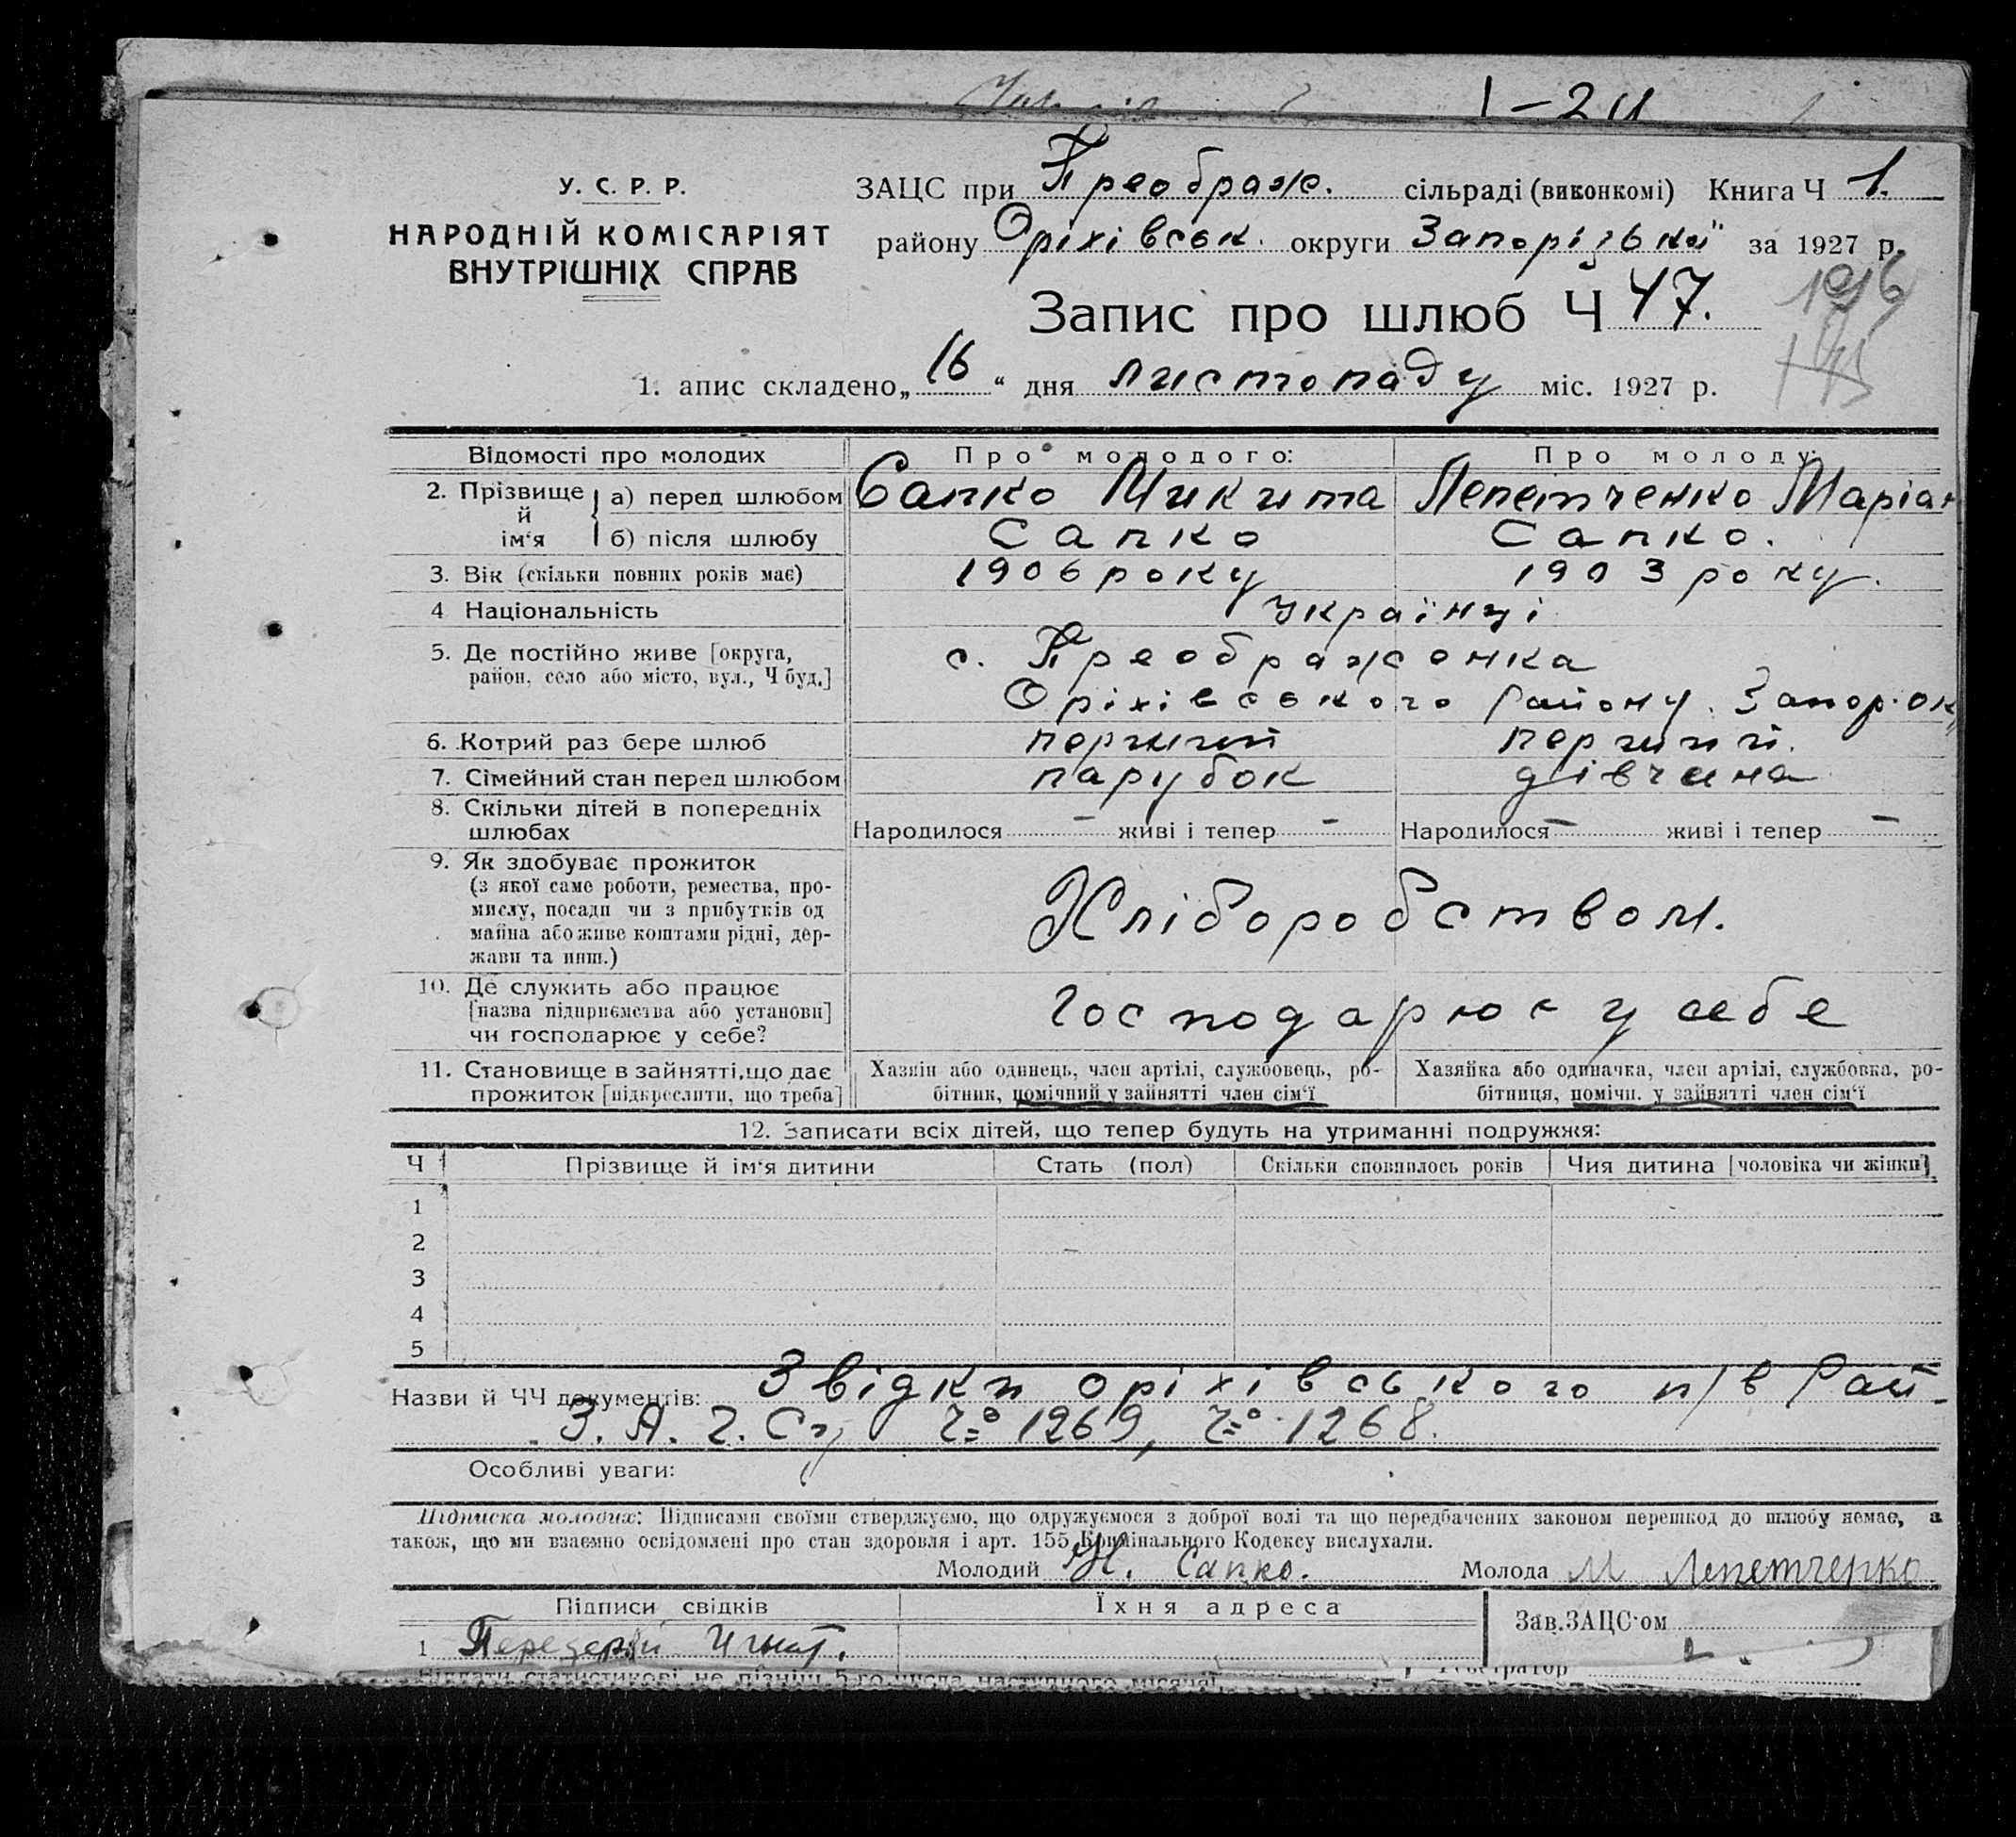 1 – 24
У. С. Р. Р.
НАРОДНІЙ КОМІСАРІЯТ
ВНУТРІШНІХ СПРАВ
ЗАЦС при Преображ. сільраді (виконкомі) Книга Ч 1.
району Оріхівськ. округи Запорізької за 1927 р.
Запис про шлюб Ч 47.
1. апис складено „ 16 “ дня листопаду міс. 1927 р.
Відомості про молодих Про молодого: Про молоду:
2. Прізвище й ім‘я а) перед шлюбом Сапко Микита Лепетченко Маріан
б) після шлюбу Сапко Сапко.
3. Вік (скільки повних років має) 1906 року 1903 року.
4 Національність Українці
5. Де постійно живе [округа, с. Преображенка
район, село або місто, вул., Ч буд.] Оріхівського Району. Запор. ок
6. Котрий раз бере шлюб перший перший.
7. Сімейний стан перед шлюбом парубок дівчина
8. Скільки дітей в попередніх
шлюбах Народилося – живі і тепер – Народилося – живі і тепер –
9. Як здобуває прожиток
(з якої саме роботи, ремества, про-
мислу, посади чи з прибутків од
майна або живе коштами рідні, дер-
жави та инш.)
Хліборобством.
10. Де служить або працює
[назва підприємства або установи]
чи господарює у себе?
Господарює у себе
11. Становище в зайнятті, що дає Хазяін або одинець, член артілі, службовець, ро- Хазяйка або одиначка, член артілі, службовка, ро-
прожиток [підкреслити, що треба] бітник, помічний у зайнятті член сім‘ї бітниця, помічн. у зайнятті член сім‘ї
12. Записати всіх дітей, що тепер будуть на утриманні подружжя:
Ч Прізвище й ім‘я дитини Стать (пол) Скільки сповнилось років Чия дитина [чоловіка чи жінки]
1
2
3
4
5
Назви й ЧЧ документів: Звідки оріхівського п/в Рай
З. А. Г. Су Ч= 1269, Ч= 1268.
Особливі уваги:
Підписка молодих: Підписами своїми стверджуємо, що одружуємося з доброї волі та що передбачених законом перешкод до шлюбу немає, а
також, що ми взаємно освідомлені про стан здоровля і арт. 155 Кримінального Кодексу вислухали.
Молодий Н. Сапко. Молода М Лепетченко
Підписи свідків Їхня адреса Зав. ЗАЦС‘ом
1 Передерій Игнат.
Віддати статистикові не пізніш 5-го числа наступного місяця Реєстратор